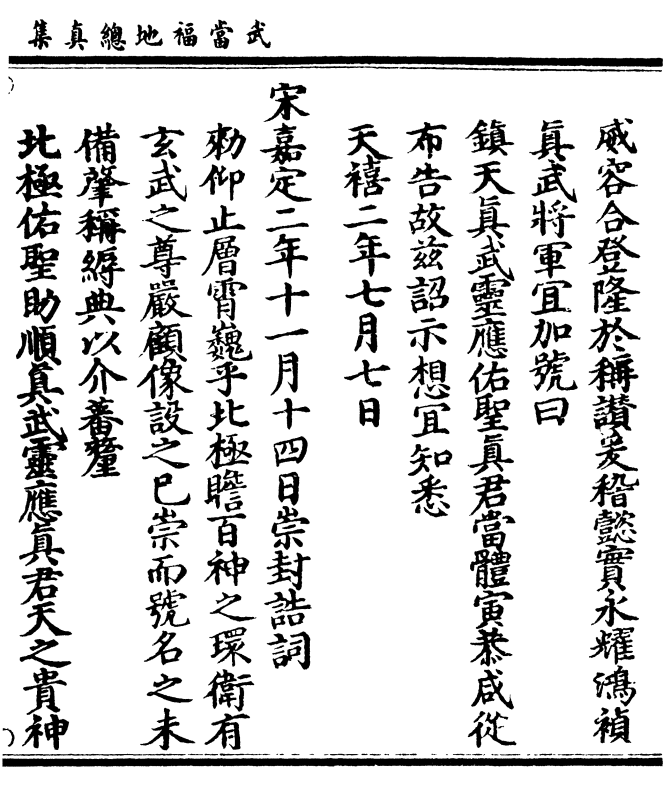 武當福地總真集
威容合登隆於稱讚爰稽懿實永耀鴻禎
真武將軍宜加號曰
鎮天真武靈應佑聖真君當體寅恭咸從
布告故茲詔示想宜知悉
天禧二年七月七日
宋嘉定二年十一月十四日崇封誥詞
勑仰止層霄巍乎北極瞻百神之環衛有
玄武之尊嚴顧像設之已崇而號名之未
備肇稱縟典以介蕃釐
北極佑聖助順真武靈應真君天之貴神